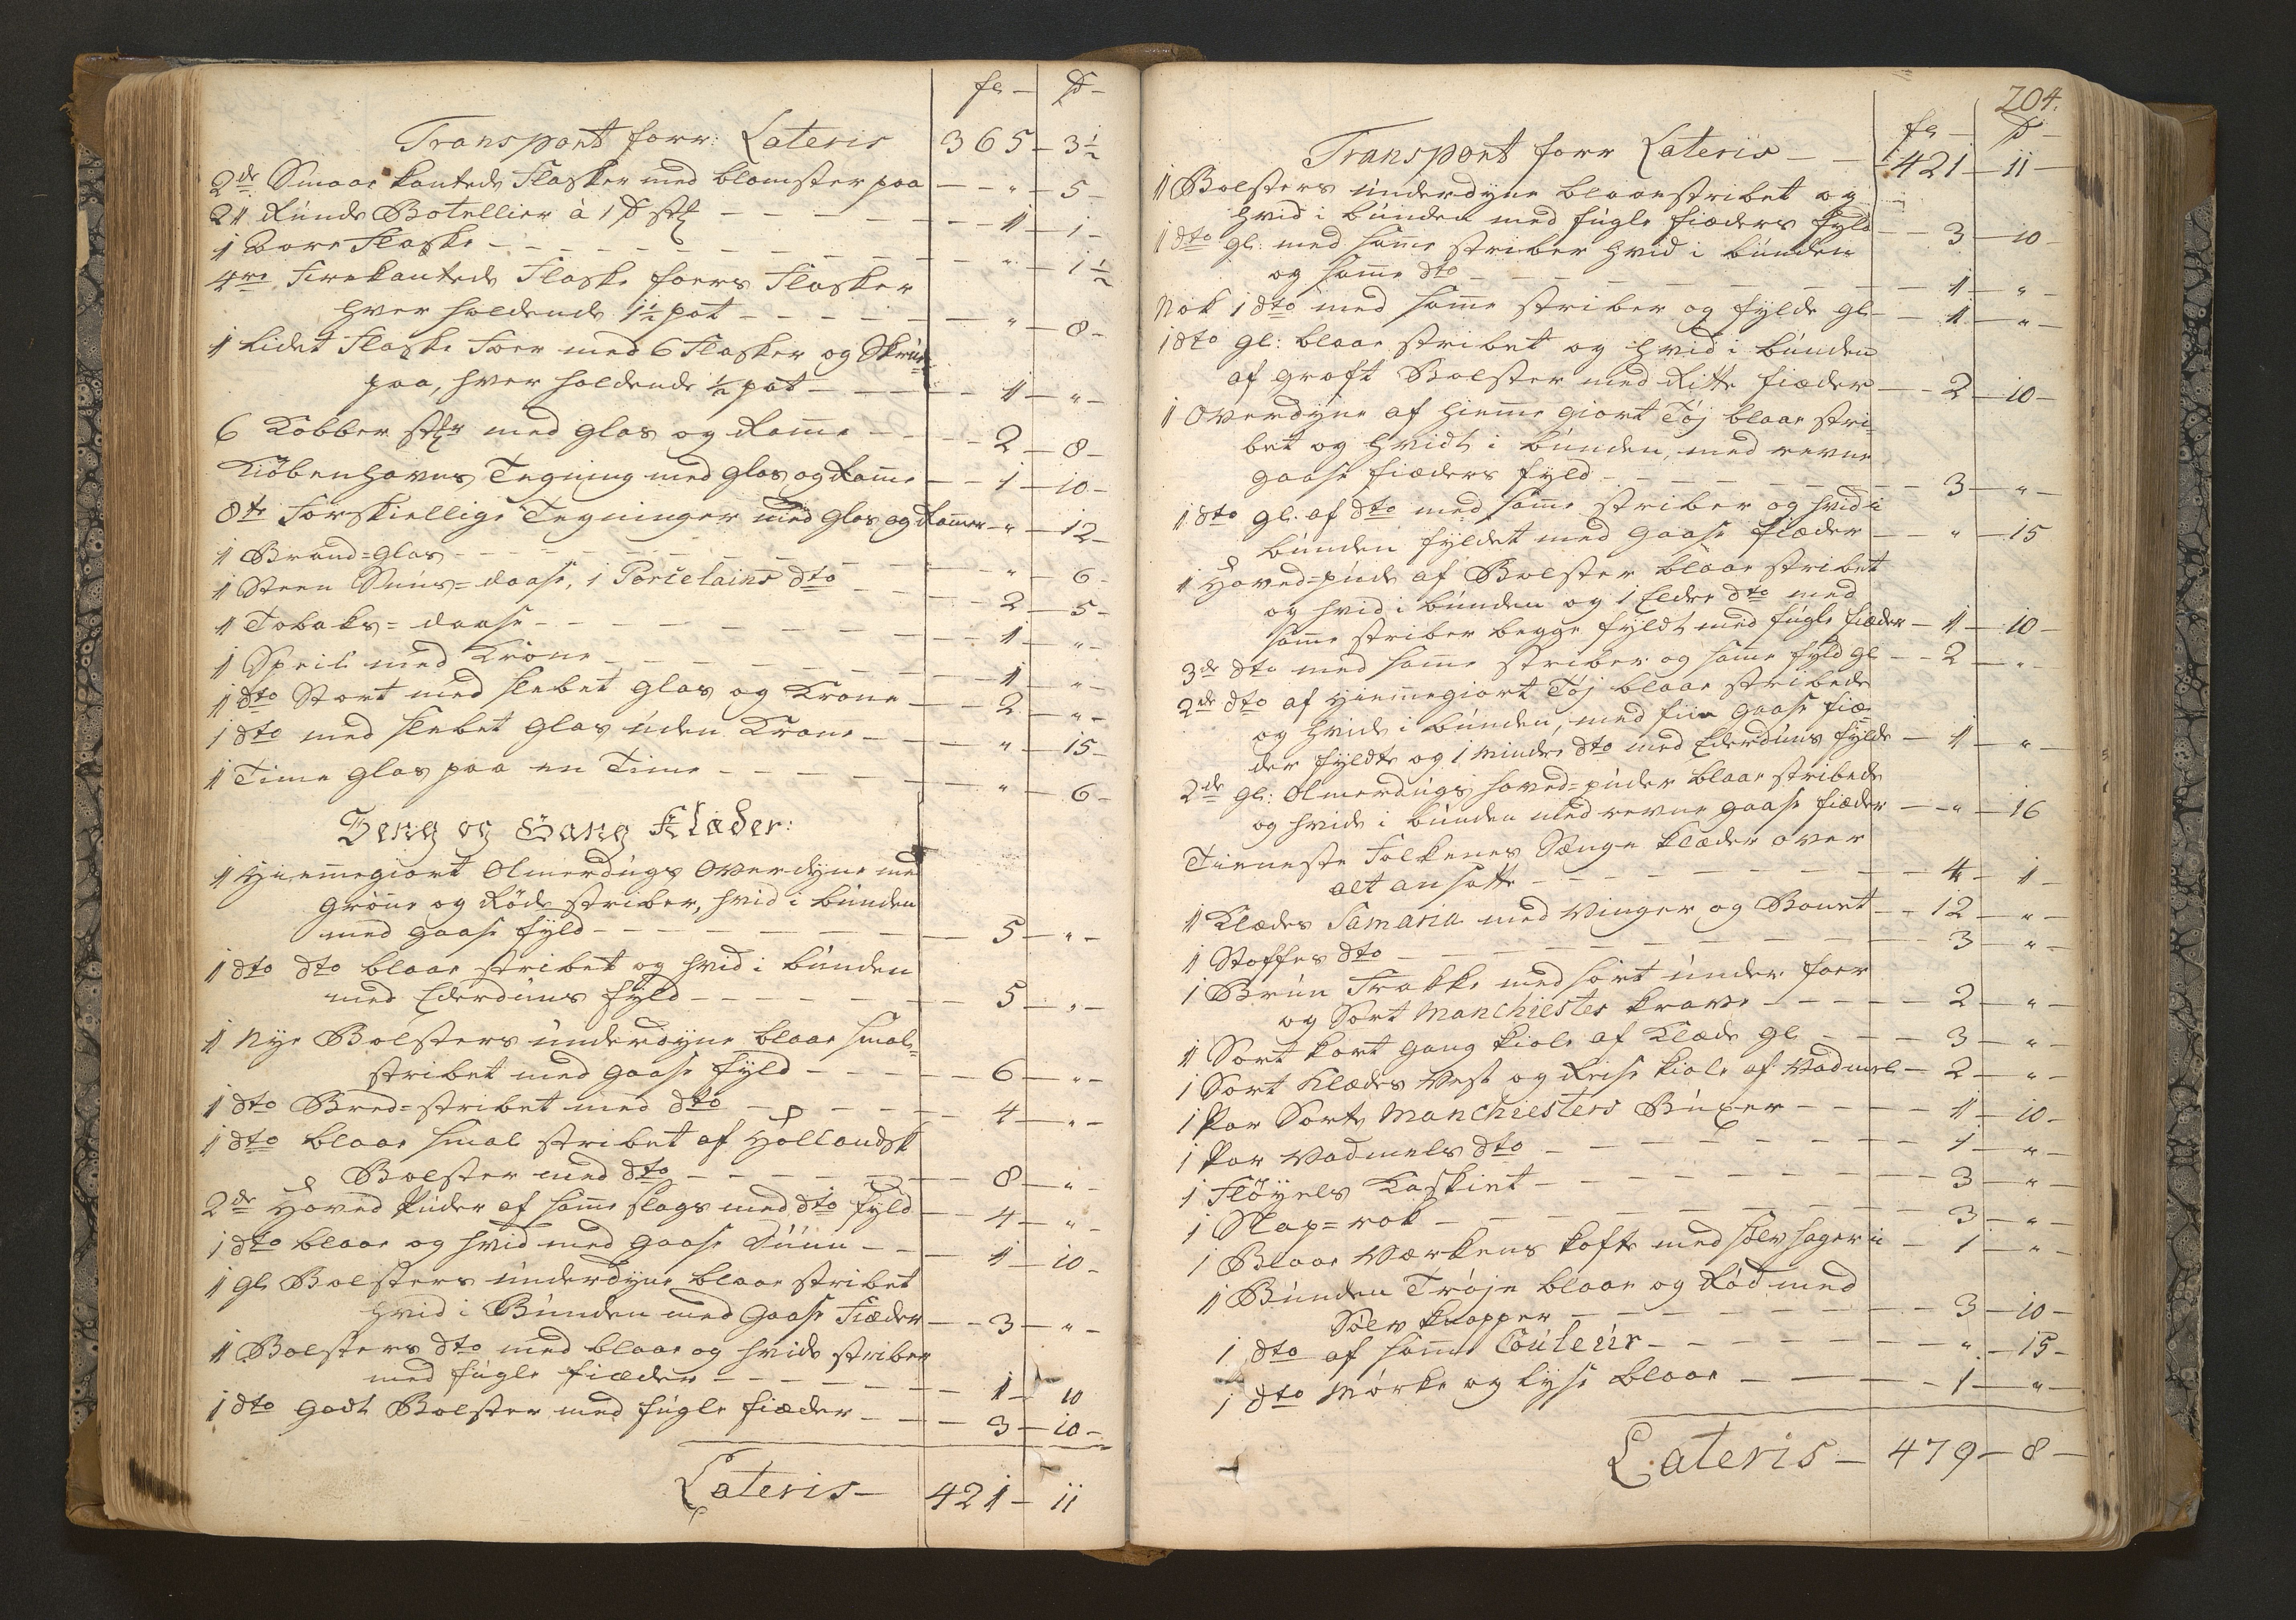 fl — ß —
Transport forr: Lateris 365 — 3½
2de Smaae kantede Flasker med blomster paa — — " — 5 —
21 Runde Botellier à 1 ß stk — — — — 1 — 1 —
1 Bore Flaske — — — — — " — 1½
4re Firekantede Flaske foers Flasker
hver holdende 1½ pot — — — — " — 8 —
1 Lidet Flaske Foer med 6 Flasker og Skrue
paa, hver holdende ½ pot — — — 1 — " —
6 Kobber stkr med Glas og Ramme — — 2 — 8 —
Kiöbenhavns Tegning med Glas og Ramme — — 1 — 10 —
8te Forskiellige Tegninger med Glas og Rammer — " — 12 —
1 Brand=Glas — — — — — " — 6 —
1 Steen Snuus=daase, 1 Porcelains dto — — 2 — 5 —
1 Tobaks=daase — — — — 1 — " —
1 Speil med Krone — — — — 1 — " —
1 dto Stort med slebet Glas og Krone — — 2 — " —
1 dto med slebet Glas uden Krone — — " — 15 —
1 Time Glas paa en Time — — — — " — 6 —
Seng og Gang Klæder:
1 Hiemmegiort Olmerdugs Overdyne med
Grönne og Röde striber, hvid i bunden
med Gaase fyld — — — — 5 — " —
1 dto dto blaae stribet og hvid i bunden
med Ederduuns fyld — — — — 5 — " —
1 Nye Bolsters underdyne blaae smal=
stribet med Gaase fyld — — — 6 — " —
1 dto Bred=stribet med dto — — — 4 — " —
1 dto blaae smal stribet af Hollandsk
Bolster med dto — — — — 8 — " —
2de Hoved Puder af samme slags med dto fyld — 4 — " —
1 dto blaae og hvid med Gaase Duun — — 1 — 10 —
1 gl Bolsters underdyne blaae stribet
hvid i Bunden med Gaase Fiæder — — 3 — " —
1 Bolsters dto med blaae og hvide striber
med fugle fiæder — — — — 1 — 10
1 dto godt Bolster med fugle fiæder — — 3 — 10 —
Lateris — 421 — 11
204.
fl — ß —
Transport forr Lateris — — 421 — 11 —
1 Bolsters underdyne blaaestribet og
hvid i bunden med fugle fiæders fyld — — 3 — 10
1 dto gl: med samme striber hvid i bunden
og samme dto — — — — 1 — " —
Nok 1 dto med samme striber og fylde gl — — 1 — " —
1 dto gl: blaae stribet og hvid i bunden
af groft Bolster med Ritte fiæder — — 2 — 10 —
1 Overdyne af Hiemme giort Töj blaae stri=
bet og hvidt i bunden, med revne
Gaase fiæders fyld — — — — 3 — " —
1 dto gl: af dto med samme striber og hvid i
bunden fyldet med Gaase fiæder — — " — 15
1 Hoved=pude af Bolster blaae stribet
og hvid i bunden og 1 Eldre dto med
samme striber begge fyldt med fugle fiæder — 1 — 10 —
3de dto med samme striber og samme fyld gl — — 2 — " —
2de dto af Hiemmegiort Töj blaae stribede
og hvide i bunden, med fiin Gaase fiæ=
der fyldte og 1 Mindre dto med Ederduuns fylde — 1 — " —
2de gl: Olmerdugs hoved=puder blaae stribede
og hvide i bunden med revne Gaase fiæder — — " — 16
Tieneste Folkenes Senge Klæder over
alt ansatte — — — — 4 — 1 —
1 Klædes Samaria med Vinger og Bonet — — 12 — " —
1 Stoffes dto — — — — 3 — "
1 Bruun Frakke med sort under foer
og Sort Manchiester krave — — — — 2 — "
1 Sort kort gang kiole af Klæde gl — — — 3 — " —
1 Sort Klædes Vest og Reise kiole af Vadmel — 2 — " —
1 Par Sorte Manchiesters Buxer — — — 1 — 10 —
1 Par Vadmels dto — — — — 1 — " —
1 Flöyels Kaskiet — — — — 3 — " —
1 Slap=rok — — — — 3 — " —
1 Blaae Værkens kofte med sölv hager i — 1 — " —
1 Bunden Tröje blaae og Röd med
Sölv knapper — — — — 3 — 10 —
1 dto af samme Couleur — — — — " — 15 —
1 dto Mörke og lyse blaae — — — — 1 — " —
Lateris — 479 — 8 —